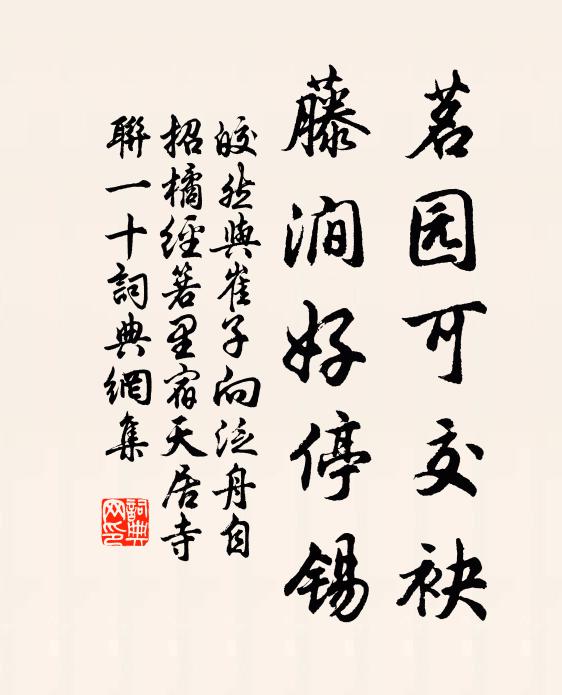 茗园可交袂
藤涧好停锡
皎然與崔子向泛舟自
招橘經箬里宿天居寺
聯一十詞典網集
詞典网印